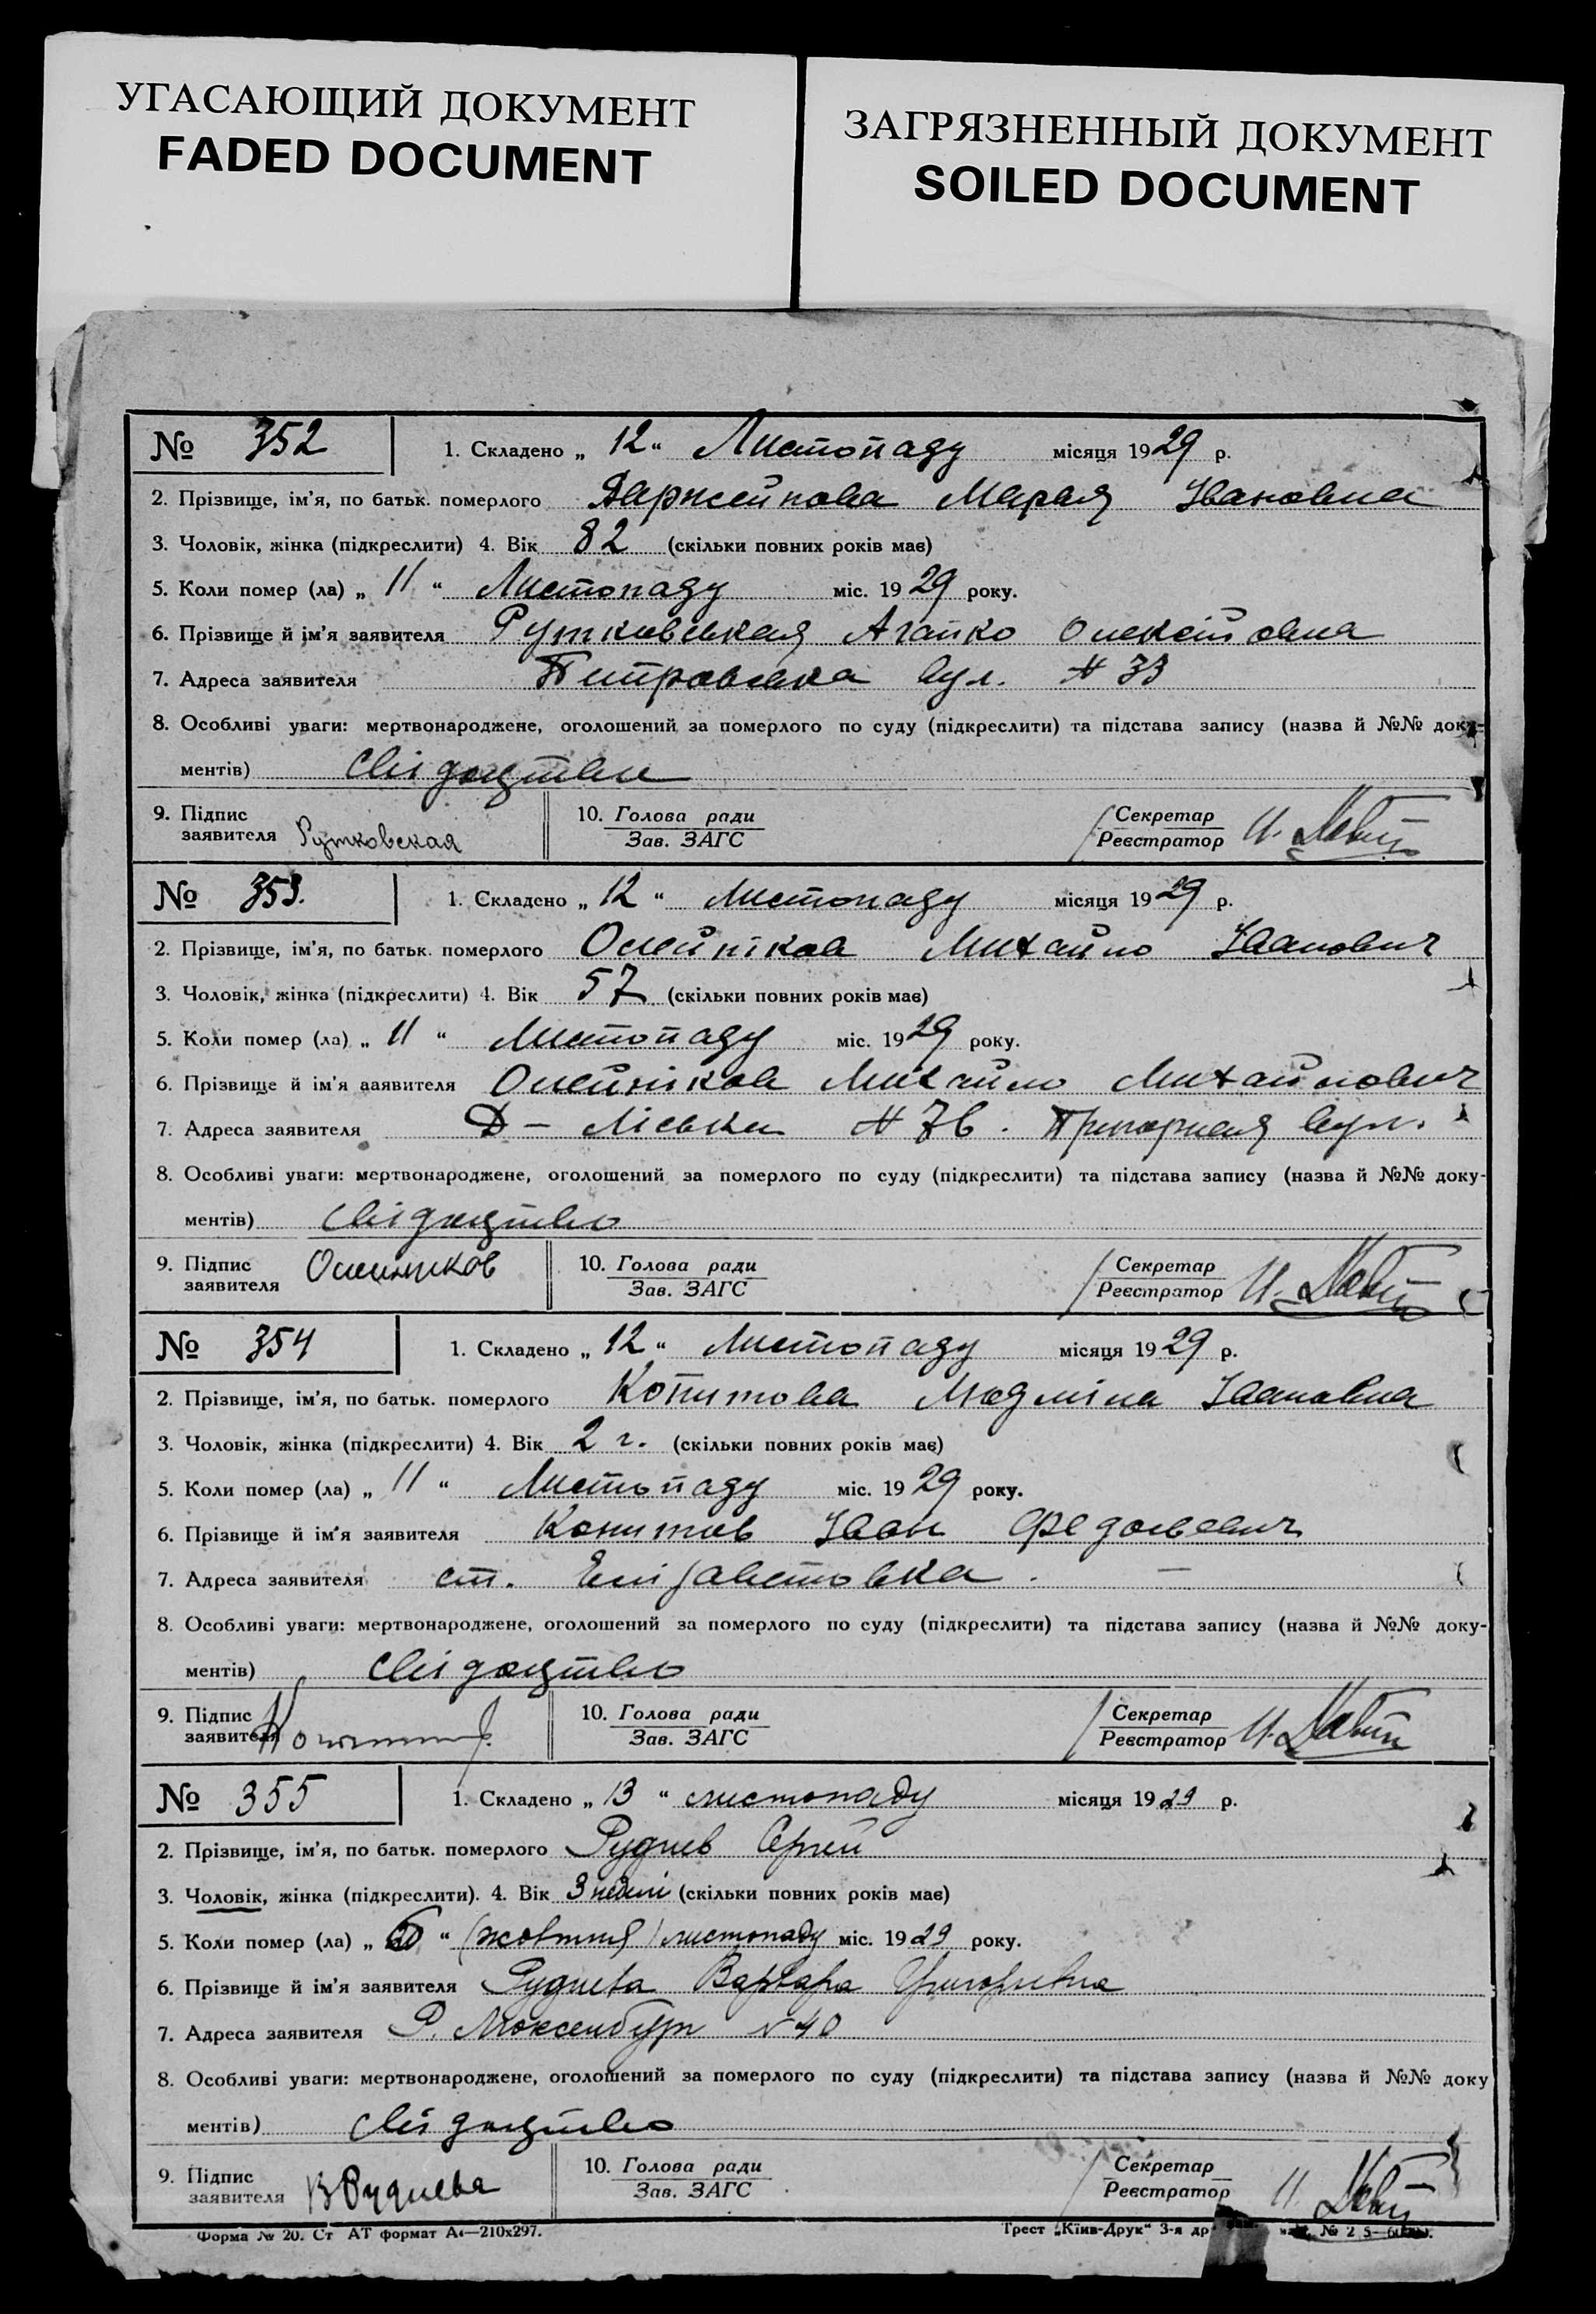 УГАСАЮЩИЙ ДОКУМЕНТ
FADED DOCUMENT
ЗАГРЯЗНЕННЫЙ ДОКУМЕНТ
SOILED DOCUMENT
№ 352 1. Складено „ 12 “ Листопаду місяця 1929 р.
2. Прізвище, ім'я, по батьк. померлого Марія Івановна
3. Чоловік, жінка (підкреслити) 4. Вік 82 (скільки повних років має)
5. Коли помер (ла) „ 11 “ Листопаду міс. 1929 року.
6. Прізвище й ім'я заявителя Рутковська Олексіївна
7. Адреса заявителя Петровська вул. № 33
8. Особливі уваги: мертвонароджене, оголошений за померлого по суду (підкреслити) та підстава запису (назва й №№ доку-
ментів)
9. Підпис заявителя Рутковская 10. Голова ради Зав. ЗАГС Секретар Реєстратор
№ 353. 1. Складено „ 12 “ Листопаду місяця 1929 р.
2. Прізвище, ім'я, по батьк. померлого Олейніков Михайло Іванович
3. Чоловік, жінка (підкреслити) 4. Вік 57 (скільки повних років має)
5. Коли помер (ла) „ 11 “ Листопаду міс. 1929 року.
6. Прізвище й ім'я заявителя Олейніков Михайло Михайлович
7. Адреса заявителя вул.
8. Особливі уваги: мертвонароджене, оголошений за померлого по суду (підкреслити) та підстава запису (назва й №№ доку-
ментів) свідоцтво
9. Підпис заявителя Олейников 10. Голова ради Зав. ЗАГС Секретар Реєстратор
№ 354 1. Складено „ 12 “ Листопаду місяця 1929 р.
2. Прізвище, ім'я, по батьк. померлого Копитова Людміла Івановна
3. Чоловік, жінка (підкреслити) 4. Вік 2 г. (скільки повних років має)
5. Коли помер (ла) „ 11 “ Листопаду міс. 1929 року.
6. Прізвище й ім'я заявителя Копитов Іван
7. Адреса заявителя ст. Елізаветовка. —
8. Особливі уваги: мертвонароджене, оголошений за померлого по суду (підкреслити) та підстава запису (назва й №№ доку-
ментів) свідоцтво
9. Підпис заявителя 10. Голова ради Зав. ЗАГС Секретар Реєстратор
№ 355 1. Складено „ 13 “ листопаду місяця 1929 р.
2. Прізвище, ім'я, по батьк. померлого Руднев Сергей
3. Чоловік, жінка (підкреслити). 4. Вік 3 неділі (скільки повних років має)
5. Коли помер (ла) „ “ (жовтня) листопаду міс. 1929 року.
6. Прізвище й ім'я заявителя Руднева Варвара Григорьевна
7. Адреса заявителя Р. Люксенбург № 40
8. Особливі уваги: мертвонароджене, оголошений за померлого по суду (підкреслити) та підстава запису (назва й №№ доку
ментів) свідоцтво
9. Підпис заявителя В Руднева 10. Голова ради Зав. ЗАГС Секретар Реєстратор
Форма № 20. Ст АТ формат А4—210х297. Трест „Київ-Друк“ 3-я др